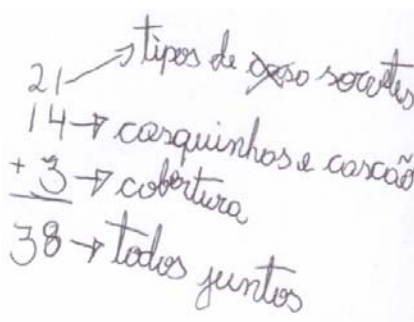 21 → tipos de sorvetes
14 → casquinhos e cascão
+ 3 → cobertura
38 → todos juntos